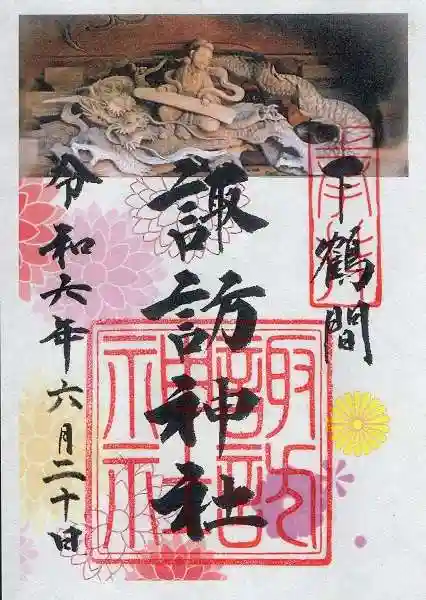 奉拝
下鶴間
諏訪神社
諏訪神社
令和六年六月二十日